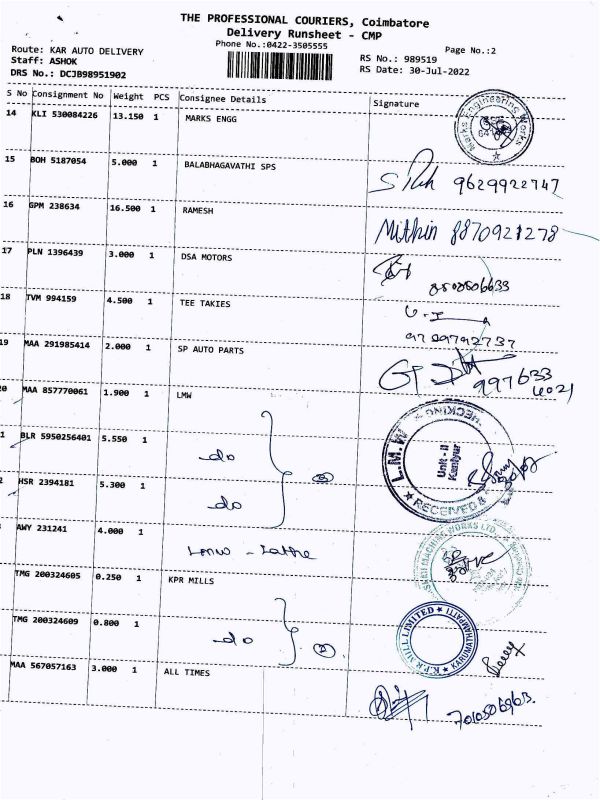 THE PROFESSIONAL COURIERS, Coimbatore
Delivery Runsheet - CMP
Phone No.:0422-3505555
Page No.:2
Route: KAR AUTO DELIVERY
Staff: ASHOK
DRS No.: DCJB98951902
RS No.: 989519
RS Date: 30-Jul-2022
S No Consignment No Weight PCS Consignee Details Signature
14 KLI 530084226 13.150 1 MARKS ENGG
Marks Engineering Works
15 BOH 5187054 5.000 1 BALABHAGAVATHI SPS
9629922747
16 GPM 238634 16.500 1 RAMESH
Mithin 8870921278
17 PLN 1396439 3.000 1 DSA MOTORS
18 TVM 994159 4.500 1 TEE TAKIES
19 MAA 291985414 2.000 1 SP AUTO PARTS
20 MAA 857770061 1.900 1 LMW
L.M.W
Unit - II
Kaniyur
RECEIVED &
CHECKING
1 BLR 5950256401 5.550 1 do
2 HSR 2394181 5.300 1 do
AWY 231241 4.000 1
TMG 200324605 0.250 1 KPR MILLS
TMG 200324609 0.800 1 do
K.P.R MILL LIMITED
KARUMATHAMPATTI
MAA 567057163 3.000 1 ALL TIMES